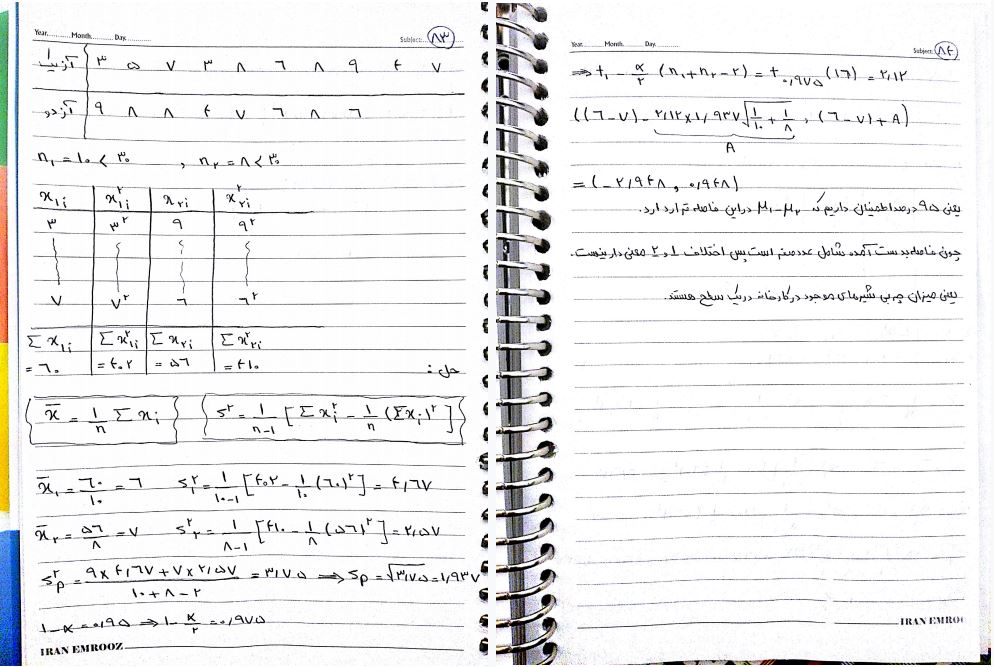 Year......... Month......... Day......... Subject: ۸۳
آزمایش ۱ ۳ ۵ ۷ ۳ ۸ ۶ ۸ ۹ ۴ ۷
آز دو ۹ ۸ ۸ ۴ ۷ ۶ ۸ ۶
n₁ = ۱۰ < ۳۰ , n₂ = ۸ < ۳۰
x₁ᵢ x₁ᵢ² x₂ᵢ x₂ᵢ²
۳ ۳² ۹ ۹²
۷ ۷² ۶ ۶²
Σx₁ᵢ Σx₁ᵢ² Σx₂ᵢ Σx₂ᵢ²
= ۶۰ = ۴۰۲ = ۵۶ = ۴۱۰
حل:
x̄ = 1/n Σxᵢ S² = 1/(n-1) [Σxᵢ² - 1/n (Σxᵢ)²]
x̄₁ = ۶۰/۱۰ = ۶ S₁² = ۱/(۱۰-۱) [۴۰۲ - ۱/۱۰ (۶۰)²] = ۴,۶۷
x̄₂ = ۵۶/۸ = ۷ S₂² = ۱/(۸-۱) [۴۱۰ - ۱/۸ (۵۶)²] = ۲,۵۷
S²p = (۹ × ۴,۶۷ + ۷ × ۲,۵۷)/(۱۰ + ۸ - ۲) = ۳,۷۵ ⇒ Sp = √۳,۷۵ = ۱,۹۳۷
۱ - α = ۰,۹۵ ⇒ ۱ - α/۲ = ۰,۹۷۵
IRAN EMROOZ
Year......... Month......... Day......... Subject: ۸۴
⇒ t₁ - α/۲ (n₁ + n₂ - ۲) = t ۰,۹۷۵ (۱۶) = ۲,۱۲
((۶ - ۷) - ۲,۱۲ × ۱,۹۳۷ √(۱/۱۰ + ۱/۸) , (۶ - ۷) + A)
A
= (-۲,۹۴۸ , ۰,۹۴۸)
یعنی ۹۵ درصد اطمینان داریم که μ₁ - μ₂ در این فاصله قرار دارد.
چون فاصله بدست آمده شامل عدد صفر است پس اختلاف ۱ و ۲ معنی دار نیست.
یعنی میزان چربی شیرهای موجود در کارخانه در یک سطح هستند.
IRAN EMRO